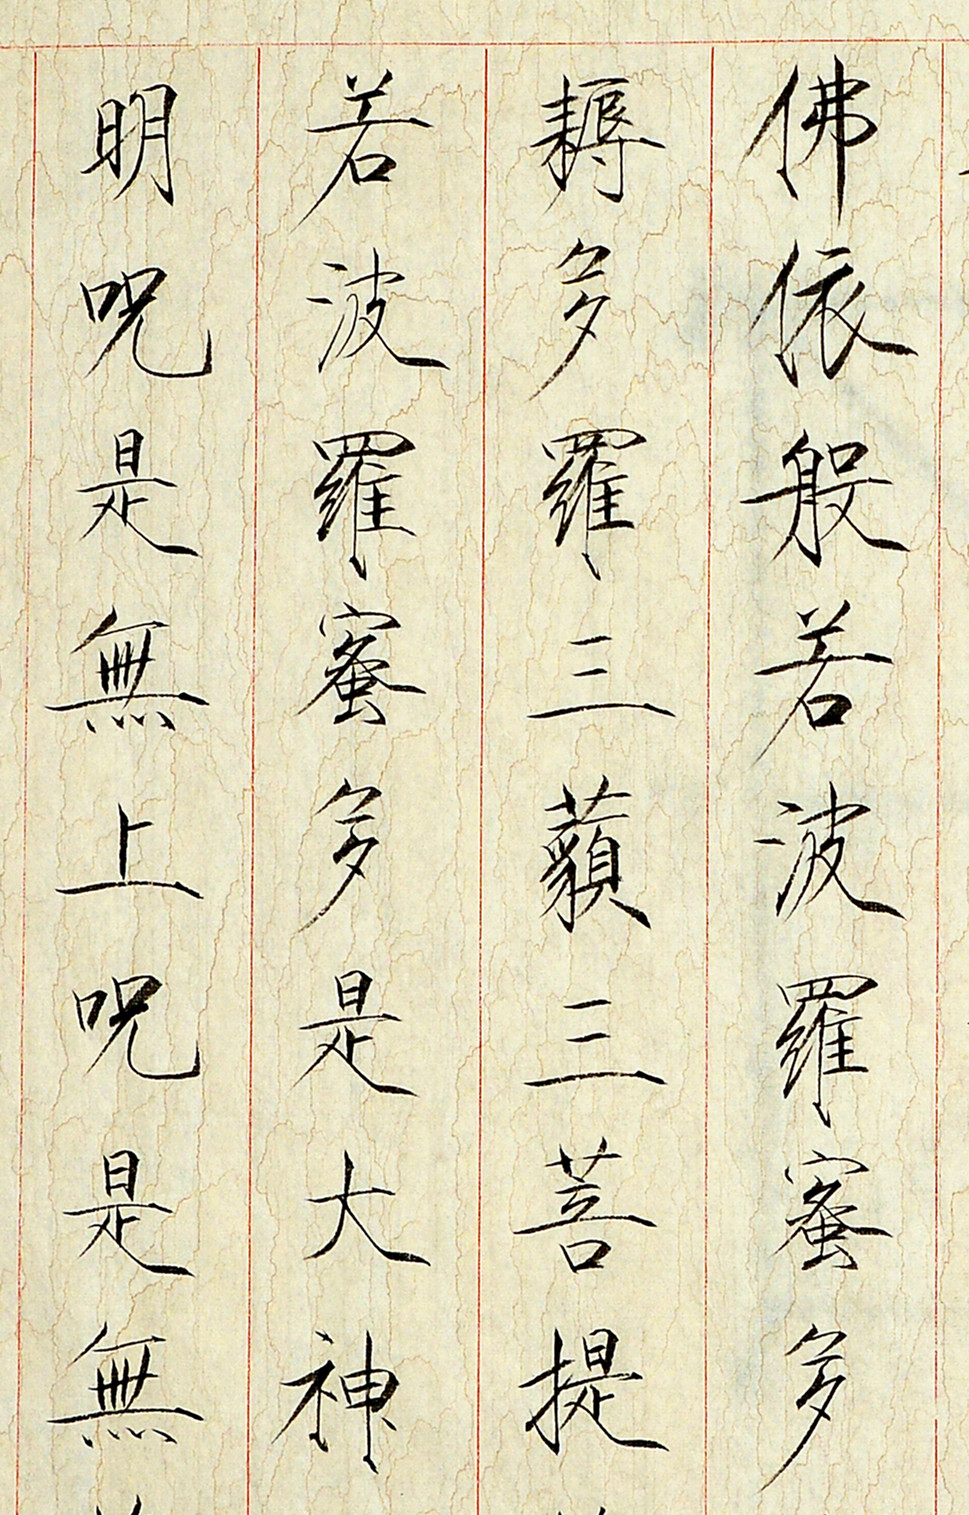 佛依般若波羅蜜多
耨多羅三藐三菩提
若波羅蜜多是大神
明呪是無上呪是無